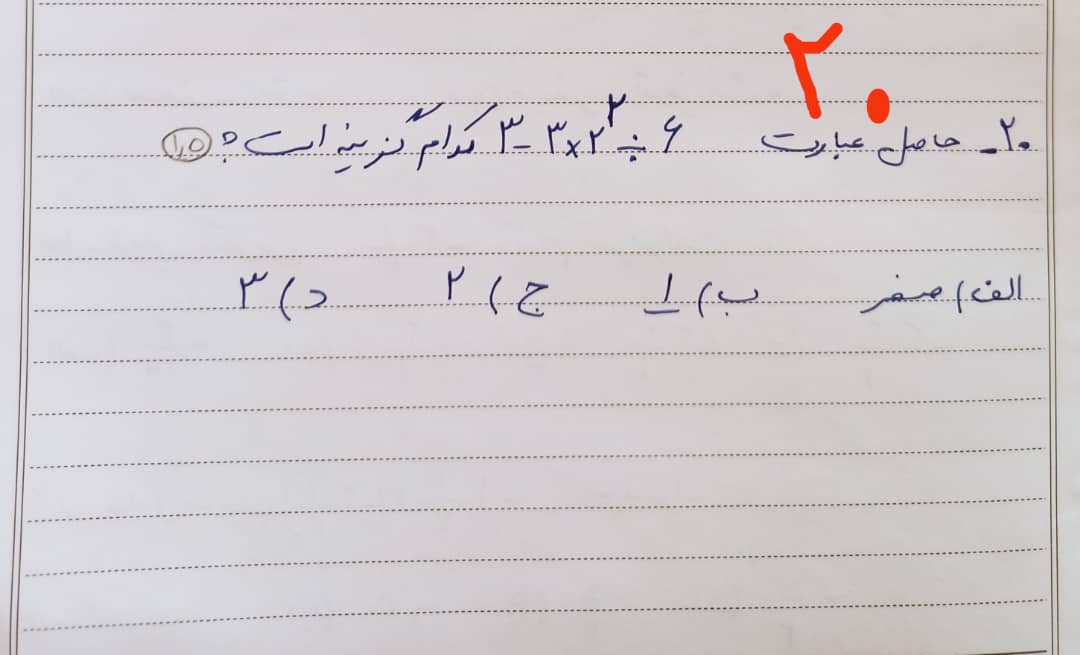 ۲۰
۲۰- حاصل عبارت ۳-۳×۲^۲÷۶ کدام گزینه است؟ (۱,۵)
الف) صفر ب) ۱ ج) ۲ د) ۳